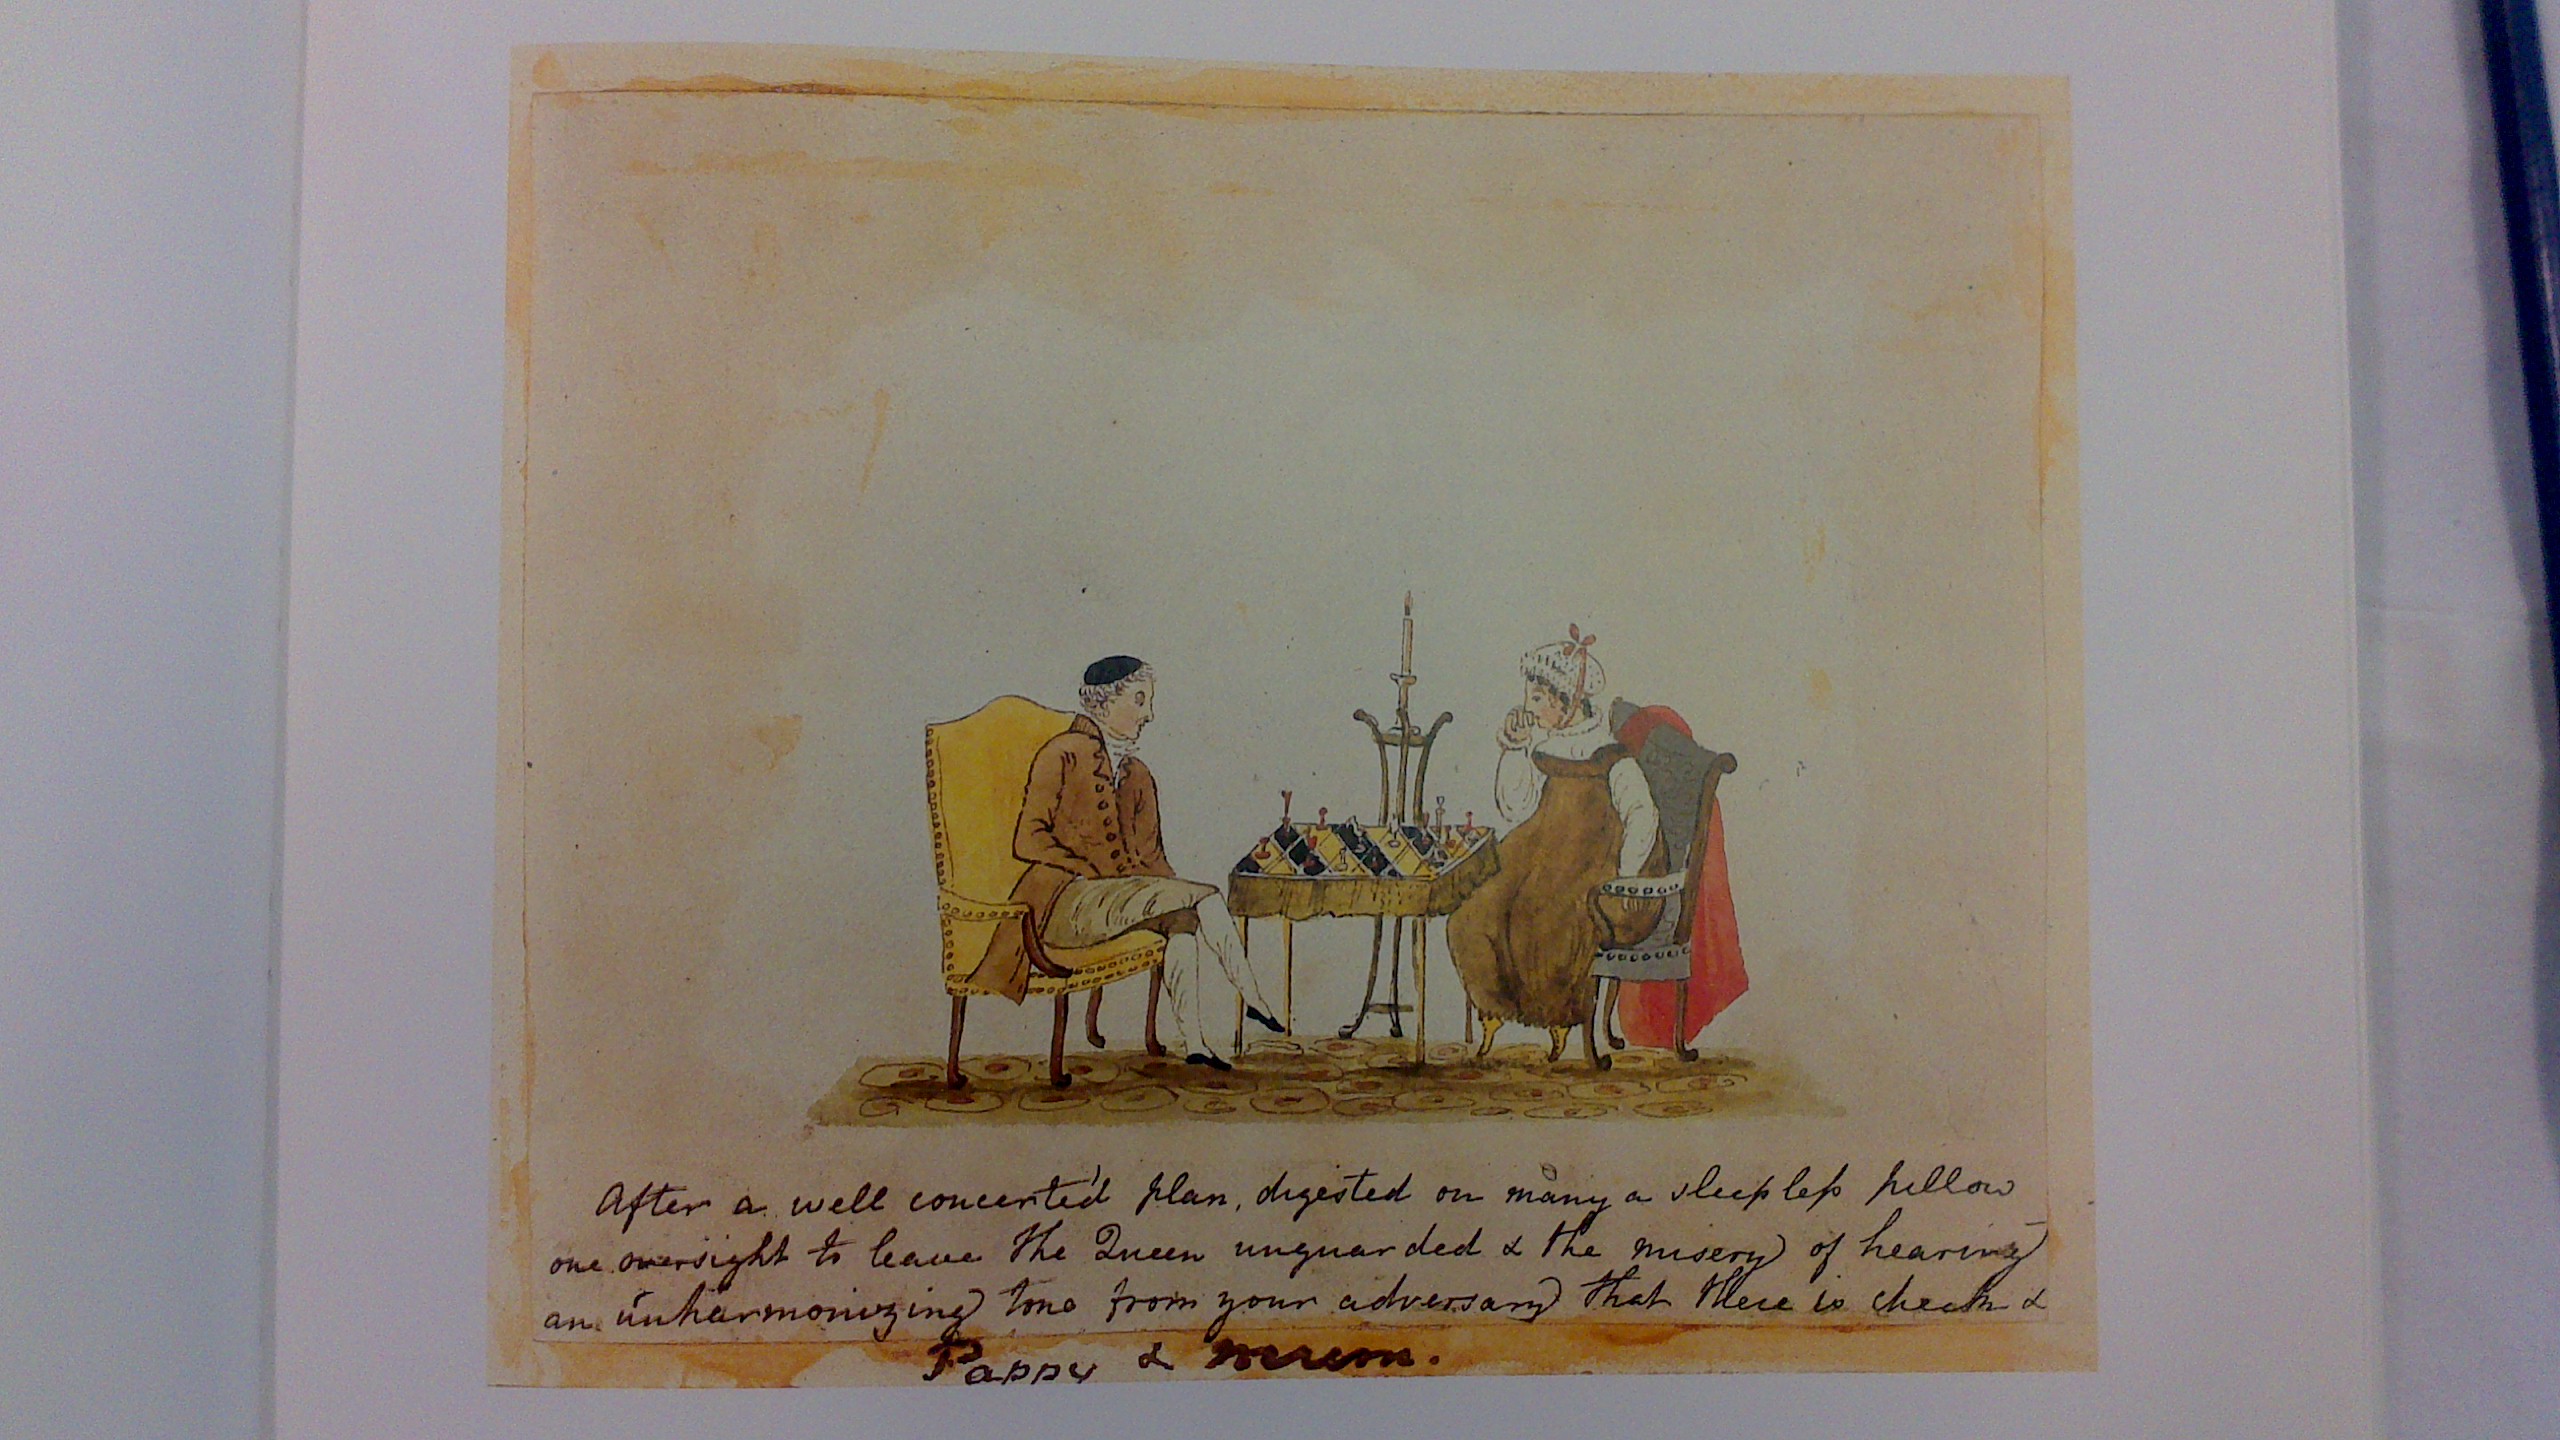 After a well concerted plan, digested on many a sleepless pillow
one oversight to leave the Queen unguarded & the misery of hearing
an unharmonizing tone from your adversary that there is check &
Pappy &